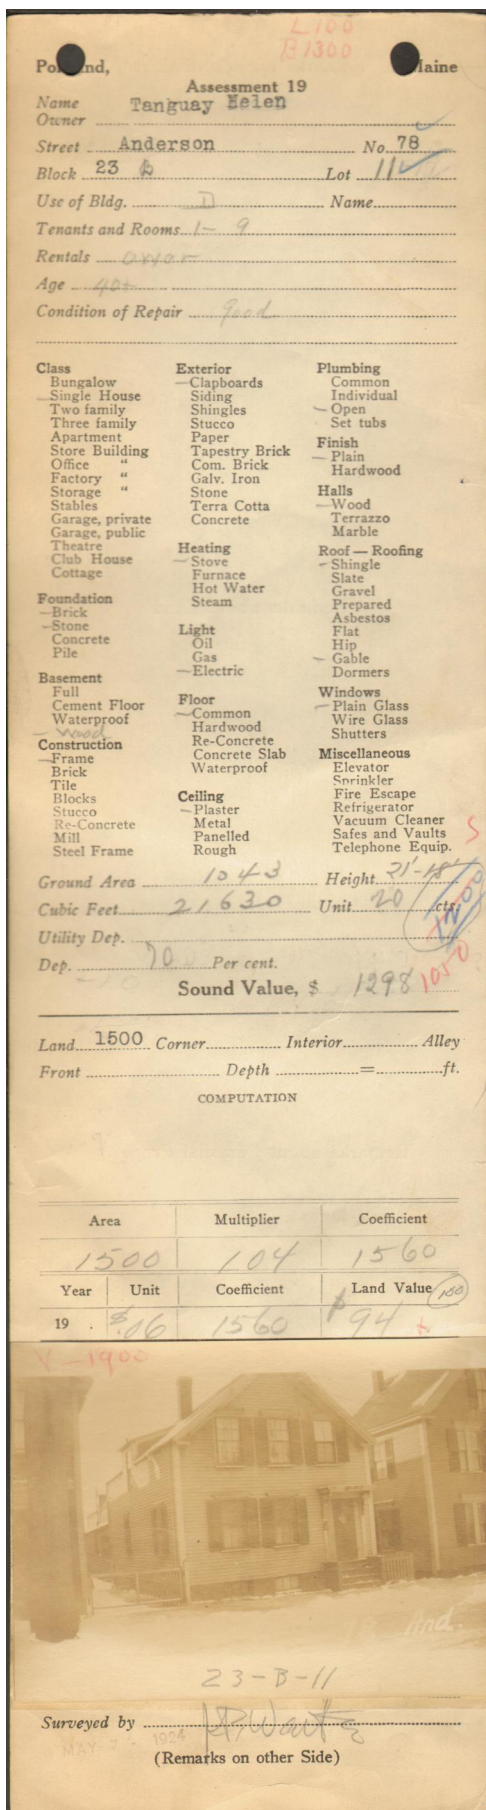 L100
B1300
Portland, Maine
Assessment 19
Name Tanguay Helen
Owner
Street Anderson No. 78
Block 23 B Lot 11
Use of Bldg. D Name
Tenants and Rooms 1-9
Rentals owner
Age 40+
Condition of Repair good
Class
Bungalow
—Single House
Two family
Three family
Apartment
Store Building
Office "
Factory "
Storage "
Stables
Garage, private
Garage, public
Theatre
Club House
Cottage
Foundation
—Brick
—Stone
Concrete
Pile
Basement
Full
Cement Floor
Waterproof
—Wood
Construction
—Frame
Brick
Tile
Blocks
Stucco
Re-Concrete
Mill
Steel Frame
Exterior
—Clapboards
Siding
Shingles
Stucco
Paper
Tapestry Brick
Com. Brick
Galv. Iron
Stone
Terra Cotta
Concrete
Heating
—Stove
Furnace
Hot Water
Steam
Light
Oil
Gas
—Electric
Floor
—Common
Hardwood
Re-Concrete
Concrete Slab
Waterproof
Ceiling
—Plaster
Metal
Panelled
Rough
Plumbing
Common
Individual
—Open
Set tubs
Finish
—Plain
Hardwood
Halls
—Wood
Terrazzo
Marble
Roof—Roofing
—Shingle
Slate
Gravel
Prepared
Asbestos
Flat
Hip
—Gable
Dormers
Windows
—Plain Glass
Wire Glass
Shutters
Miscellaneous
Elevator
Sprinkler
Fire Escape
Refrigerator
Vacuum Cleaner
Safes and Vaults
Telephone Equip.
S
Ground Area 1043 Height 21'-18'
Cubic Feet 21630 Unit 20 cts.
Utility Dep.
Dep. 70 Per cent.
Sound Value, $ 1298 1050
Land 1500 Corner Interior Alley
Front Depth = ft.
COMPUTATION
Area Multiplier Coefficient
1500 104 1560
Year Unit Coefficient Land Value 100
19 . $.06 1560 $94
V-1900
78 And.
23-B-11
Surveyed by
MAY 7 - 1924
(Remarks on other Side)